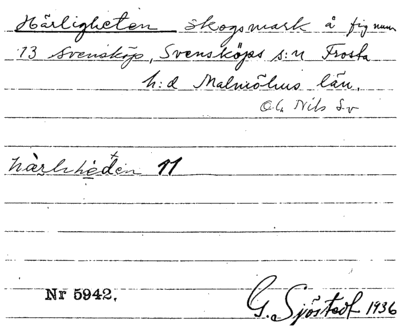 Härligheten skogsmark å fig num
13 Svensköp, Svensköps s:n Frosta
h:d Malmöhus län.
Nils
11
Nr 5942.
G. Sjöstedt 1936